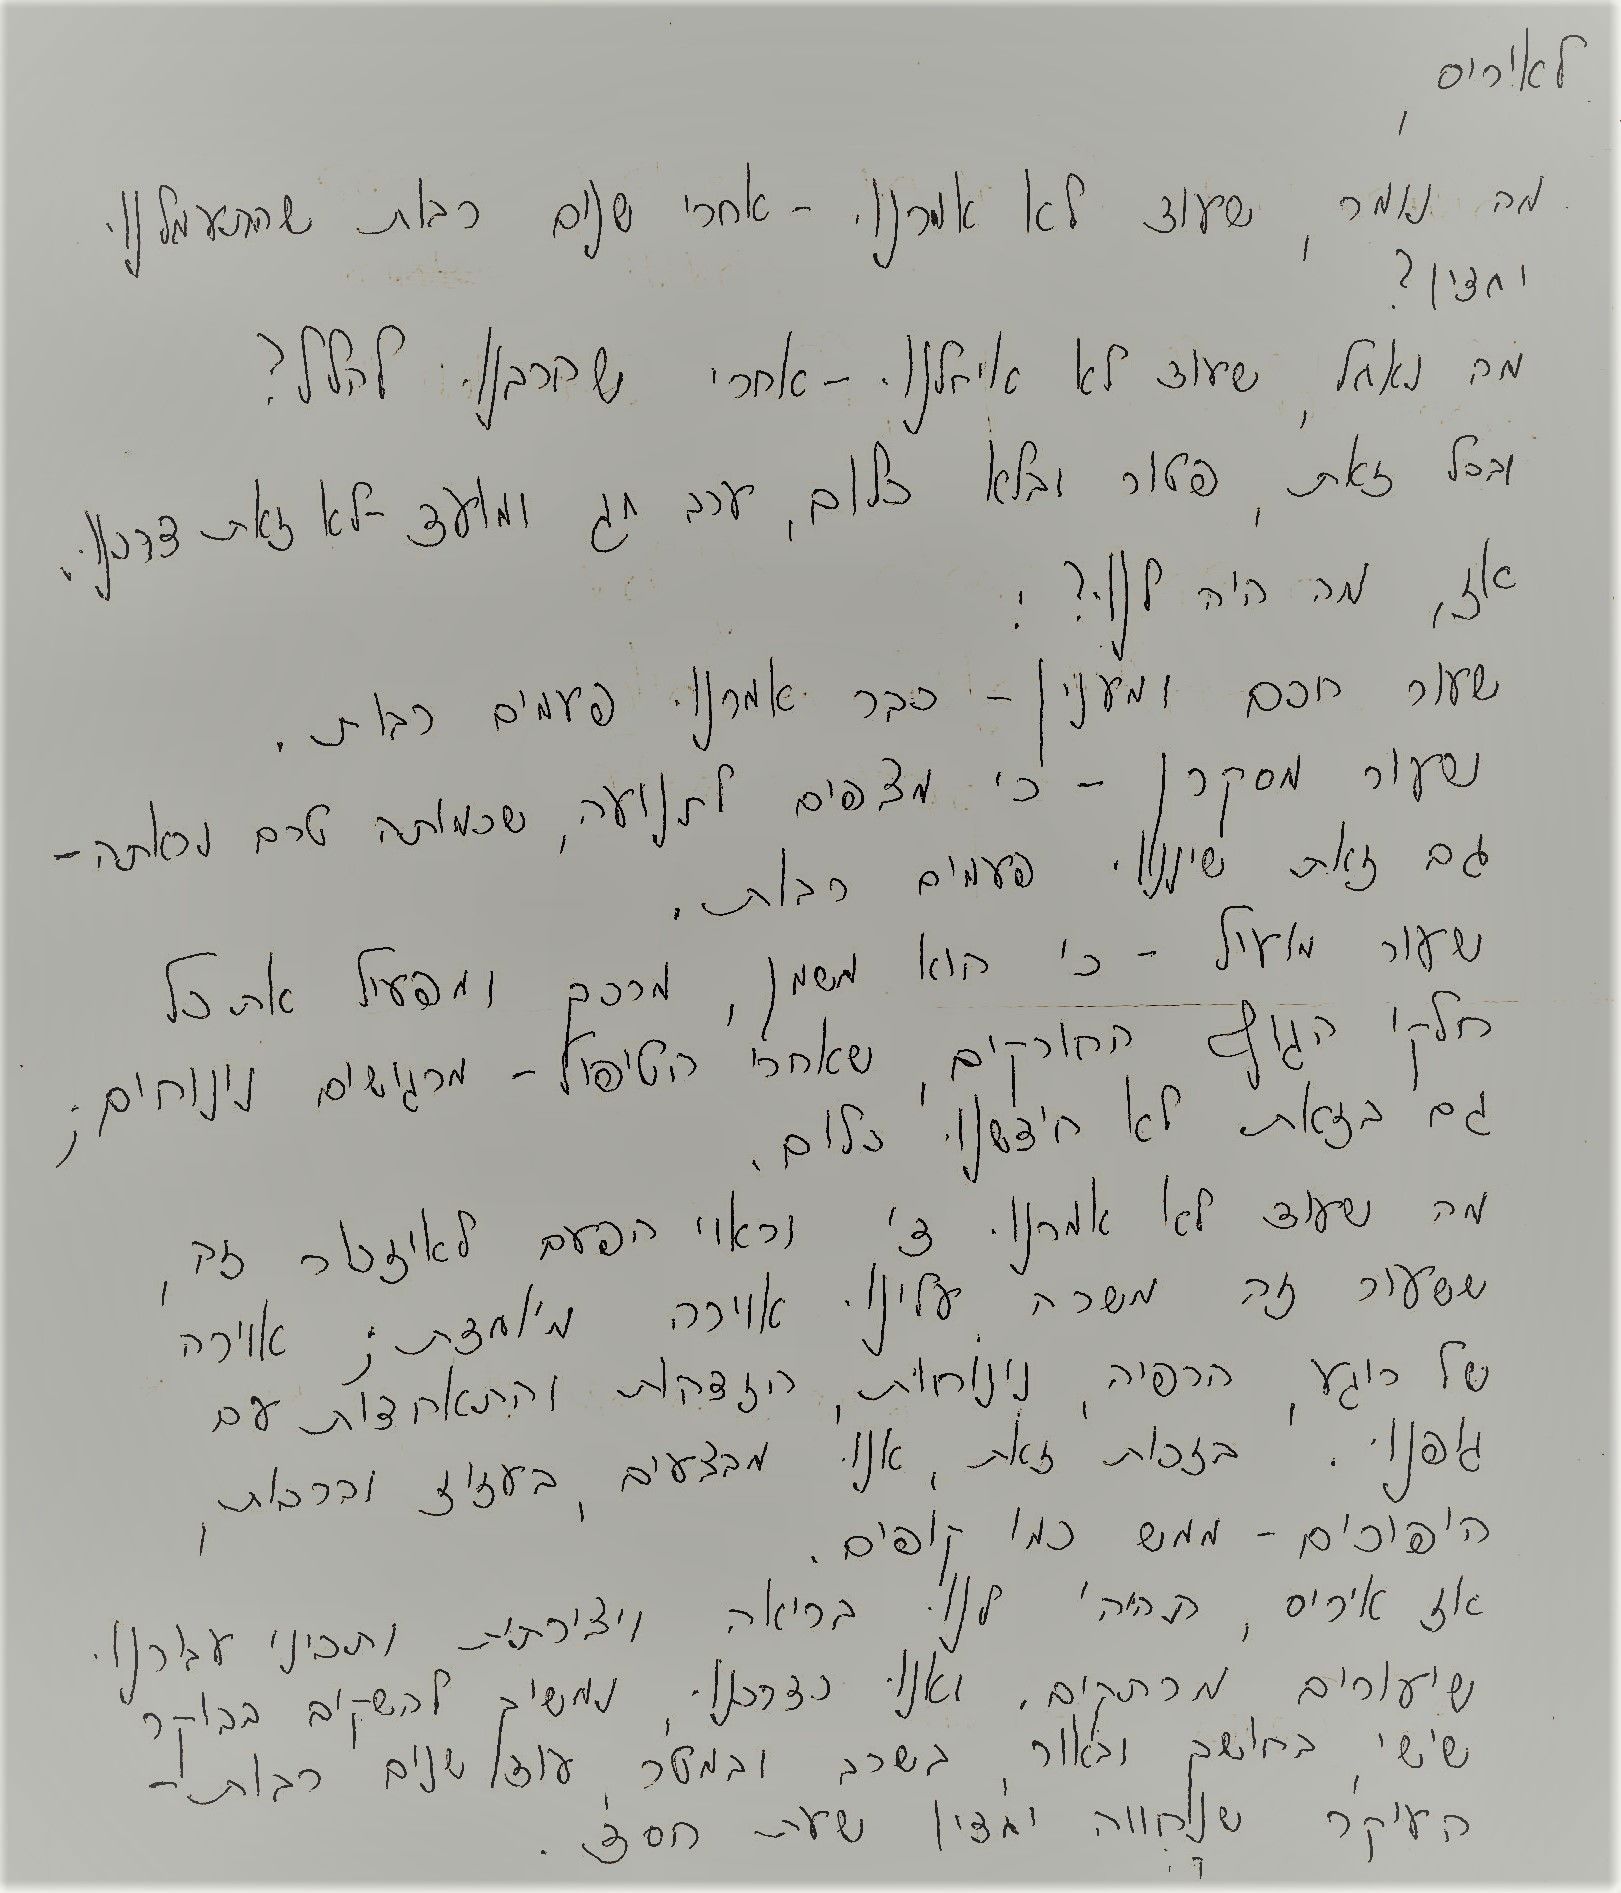 לאיריס,
מה נומר, שעוד לא אמרנו - אחרי שנים רבות שהתעמלנו
יחדיו?
מה נאחל, שעוד לא איחלנו - אחרי שהרבנו להלל?
ובכל זאת, פטור ובלא כלום, ערב חג ומועד - לא זאת דרכנו.
אז, מה היה לנו? :
שעור חכם ומענין - כבר אמרנו פעמים רבות.
שעור מסקרן - כי מצפים לתנועה, שכמותה טרם נראתה -
גם זאת שיננו פעמים רבות.
שעור מועיל - כי הוא משמן, מרכך ומפעיל את כל
חלקי הגוף החורקים, שאחרי הטיפול - מרגישים נינוחים;
גם בזאת לא חידשנו כלום.
מה שעוד לא אמרנו די וראוי הפעם לאיזכור זה,
ששעור זה משרה עלינו אוירה מיוחדת; אוירה
של רוגע, הרפיה, נינוחות, הזדככות והתאחדות עם
גופנו. בזכות זאת, אנו מבצעים, בעזוז וברכות,
היפוכים - ממש כמו קופים.
אז איריס, תהיי לנו בריאה ויצירתית ותכיני עבורנו
שיעורים מרתקים. ואנו כדרכנו, נמשיך להשכים בבוקר
שישי, בחושך ובאור, בשרב ובמטר, עוד שנים רבות -
העיקר שנחווה יחדיו שעת חסד.